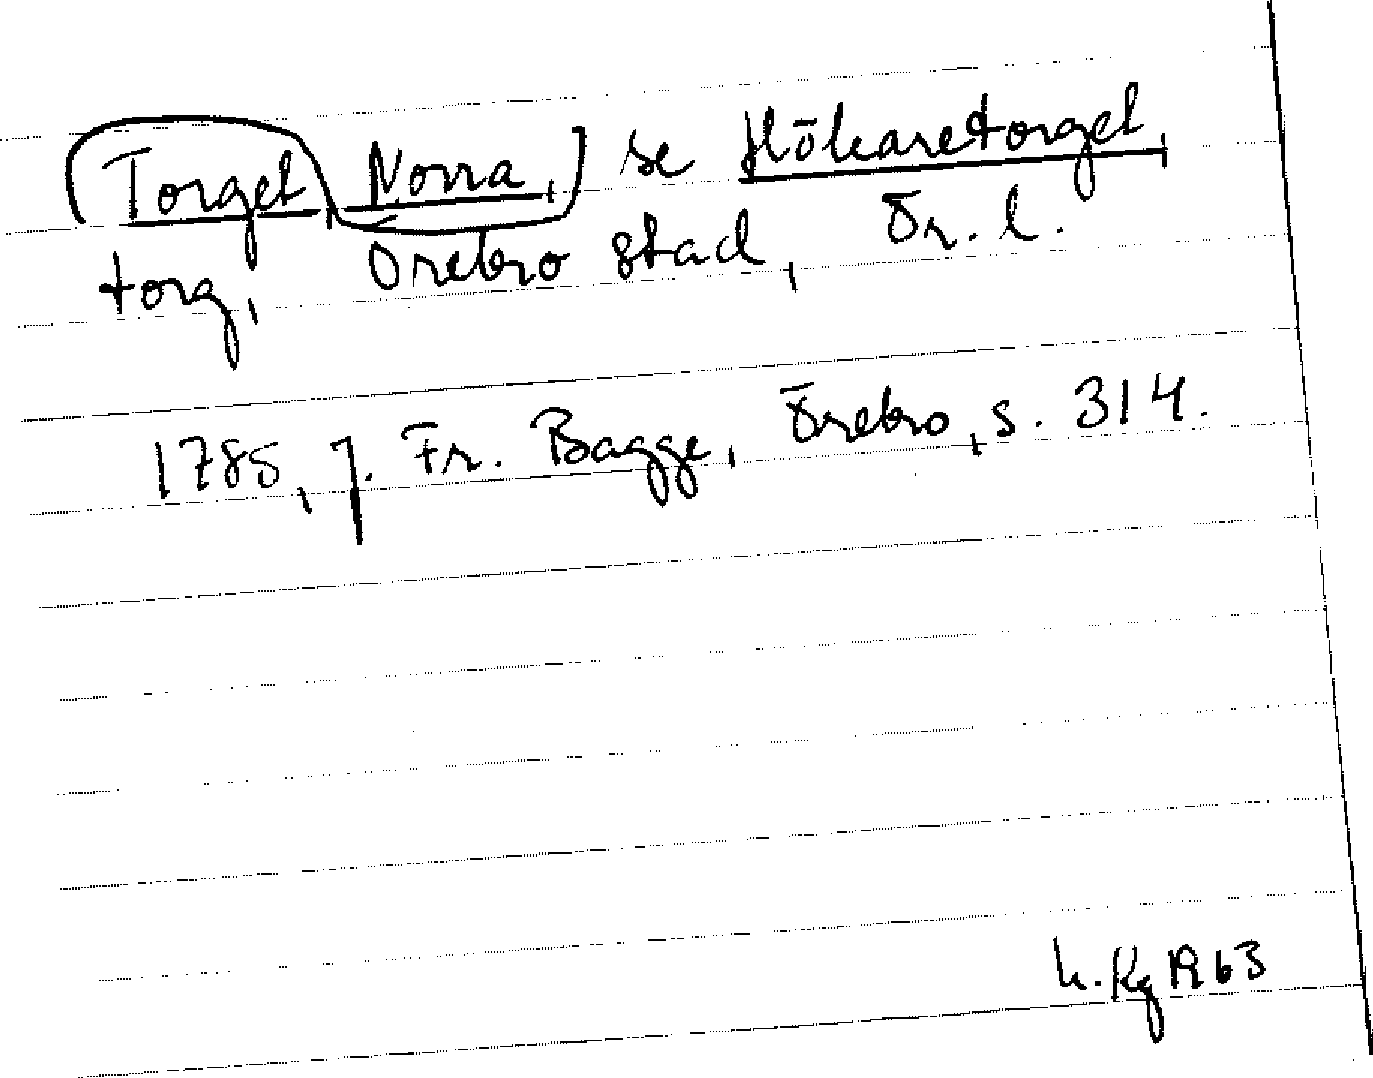 Torget, Norra, se Hökaretorget,
torg, Örebro stad, Ör. l.
1785, J. Fr. Bagge, Örebro, s. 314.
K. Kg 1963